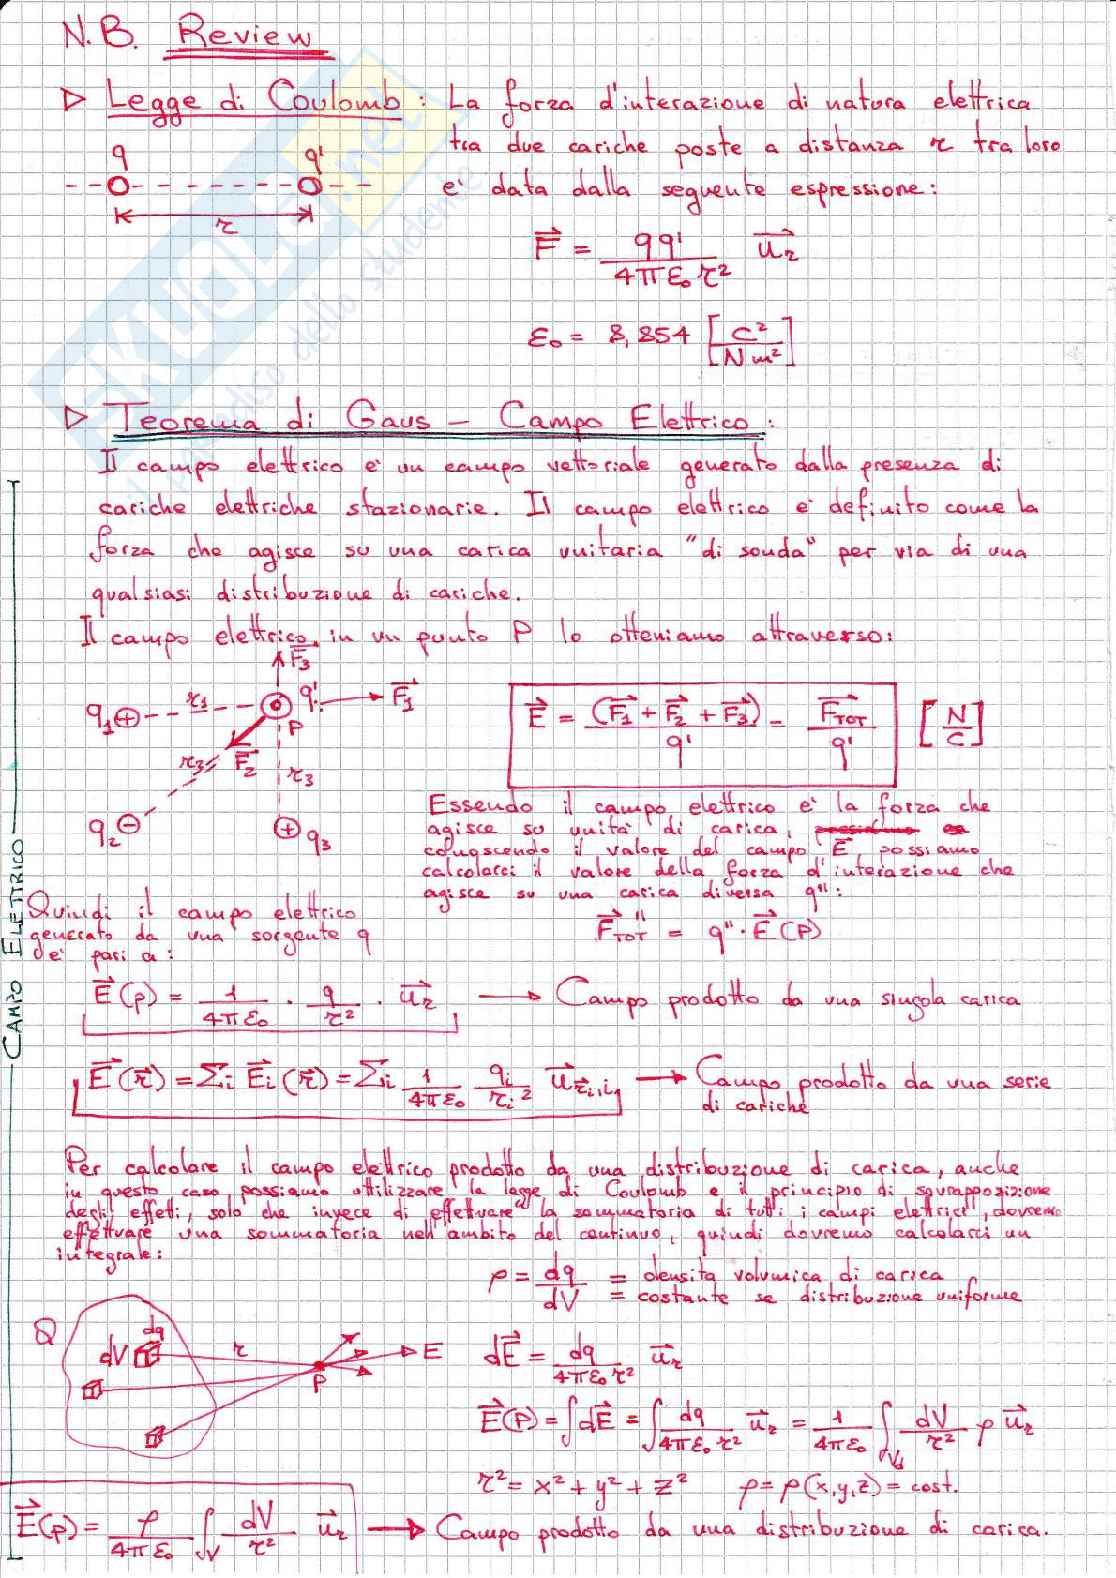 N.B. Review
▷ Legge di Coulomb: La forza d'interazione di natura elettrica
tra due cariche poste a distanza r tra loro
e' data dalla seguente espressione:
q q'
r
F = qq' / 4πε₀r² u_r
ε₀ = 8,854 [C² / N m²]
▷ Teorema di Gaus – Campo Elettrico:
Il campo elettrico e' un campo vettoriale generato dalla presenza di
cariche elettriche stazionarie. Il campo elettrico e' definito come la
forza che agisce su una carica unitaria "di sonda" per via di una
qualsiasi distribuzione di cariche.
Il campo elettrico in un punto P lo otteniamo attraverso:
F₃
q₁ r₁ q' F₁
P
r₃ F₂ r₃
q₂ q₃
E = (F₁ + F₂ + F₃) / q' = F_TOT / q' [N/C]
Essendo il campo elettrico e' la forza che
agisce su unita' di carica,
conoscendo il valore del campo E possiamo
calcolarci il valore della forza d'interazione che
agisce su una carica diversa q'':
F_TOT'' = q''·E(P)
CAMPO ELETTRICO
Quindi il campo elettrico
generato da una sorgente q
de' pari a:
E(p) = 1/4πε₀ · q/r² · u_r → Campo prodotto da una singola carica
E(r) = Σi Ei(r) = Σi 1/4πε₀ qi/ri² u_ri,i → Campo prodotto da una serie
di cariche
Per calcolare il campo elettrico prodotto da una distribuzione di carica, anche
in questo caso possiamo utilizzare la legge di Coulomb e il principio di sovrapposizione
degli effetti, solo che invece di effettuare "la sommatoria di tutti i campi elettrici", dovremo
effettuare una sommatoria nell'ambito del continuo, quindi dovremo calcolarci un
integrale:
ρ = dq/dV = densita volumica di carica
= costante se distribuzione uniforme
Q dq
dV r E
P
dE = dq / 4πε₀r² u_r
E(P) = ∫dE = ∫ dq / 4πε₀r² u_r = 1/4πε₀ ∫_V dV/r² ρ u_r
r² = x² + y² + z² ρ = ρ(x,y,z) = cost.
E(p) = ρ/4πε₀ ∫_V dV/r² u_r → Campo prodotto da una distribuzione di carica.
SKUOLA.net
il paradiso dello studente